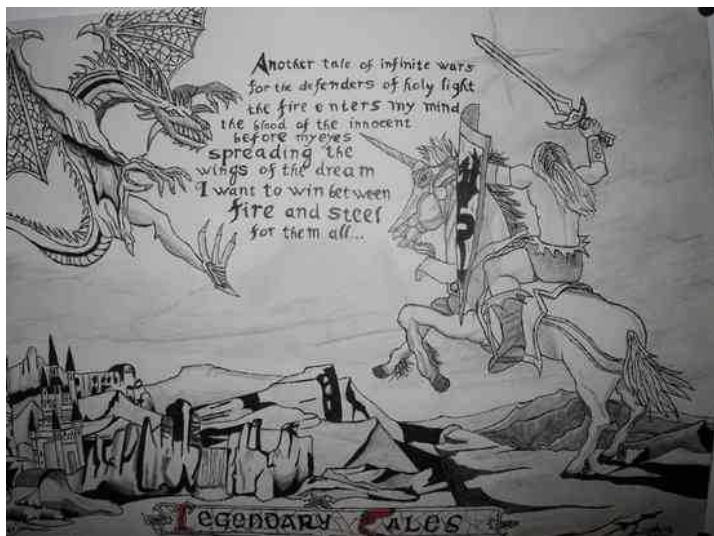 Another tale of infinite wars
for the defenders of holy light
the fire enters my mind
the blood of the innocent
before my eyes
spreading the
wings of the dream
I want to win between
fire and steel
for them all...
Legendary Tales